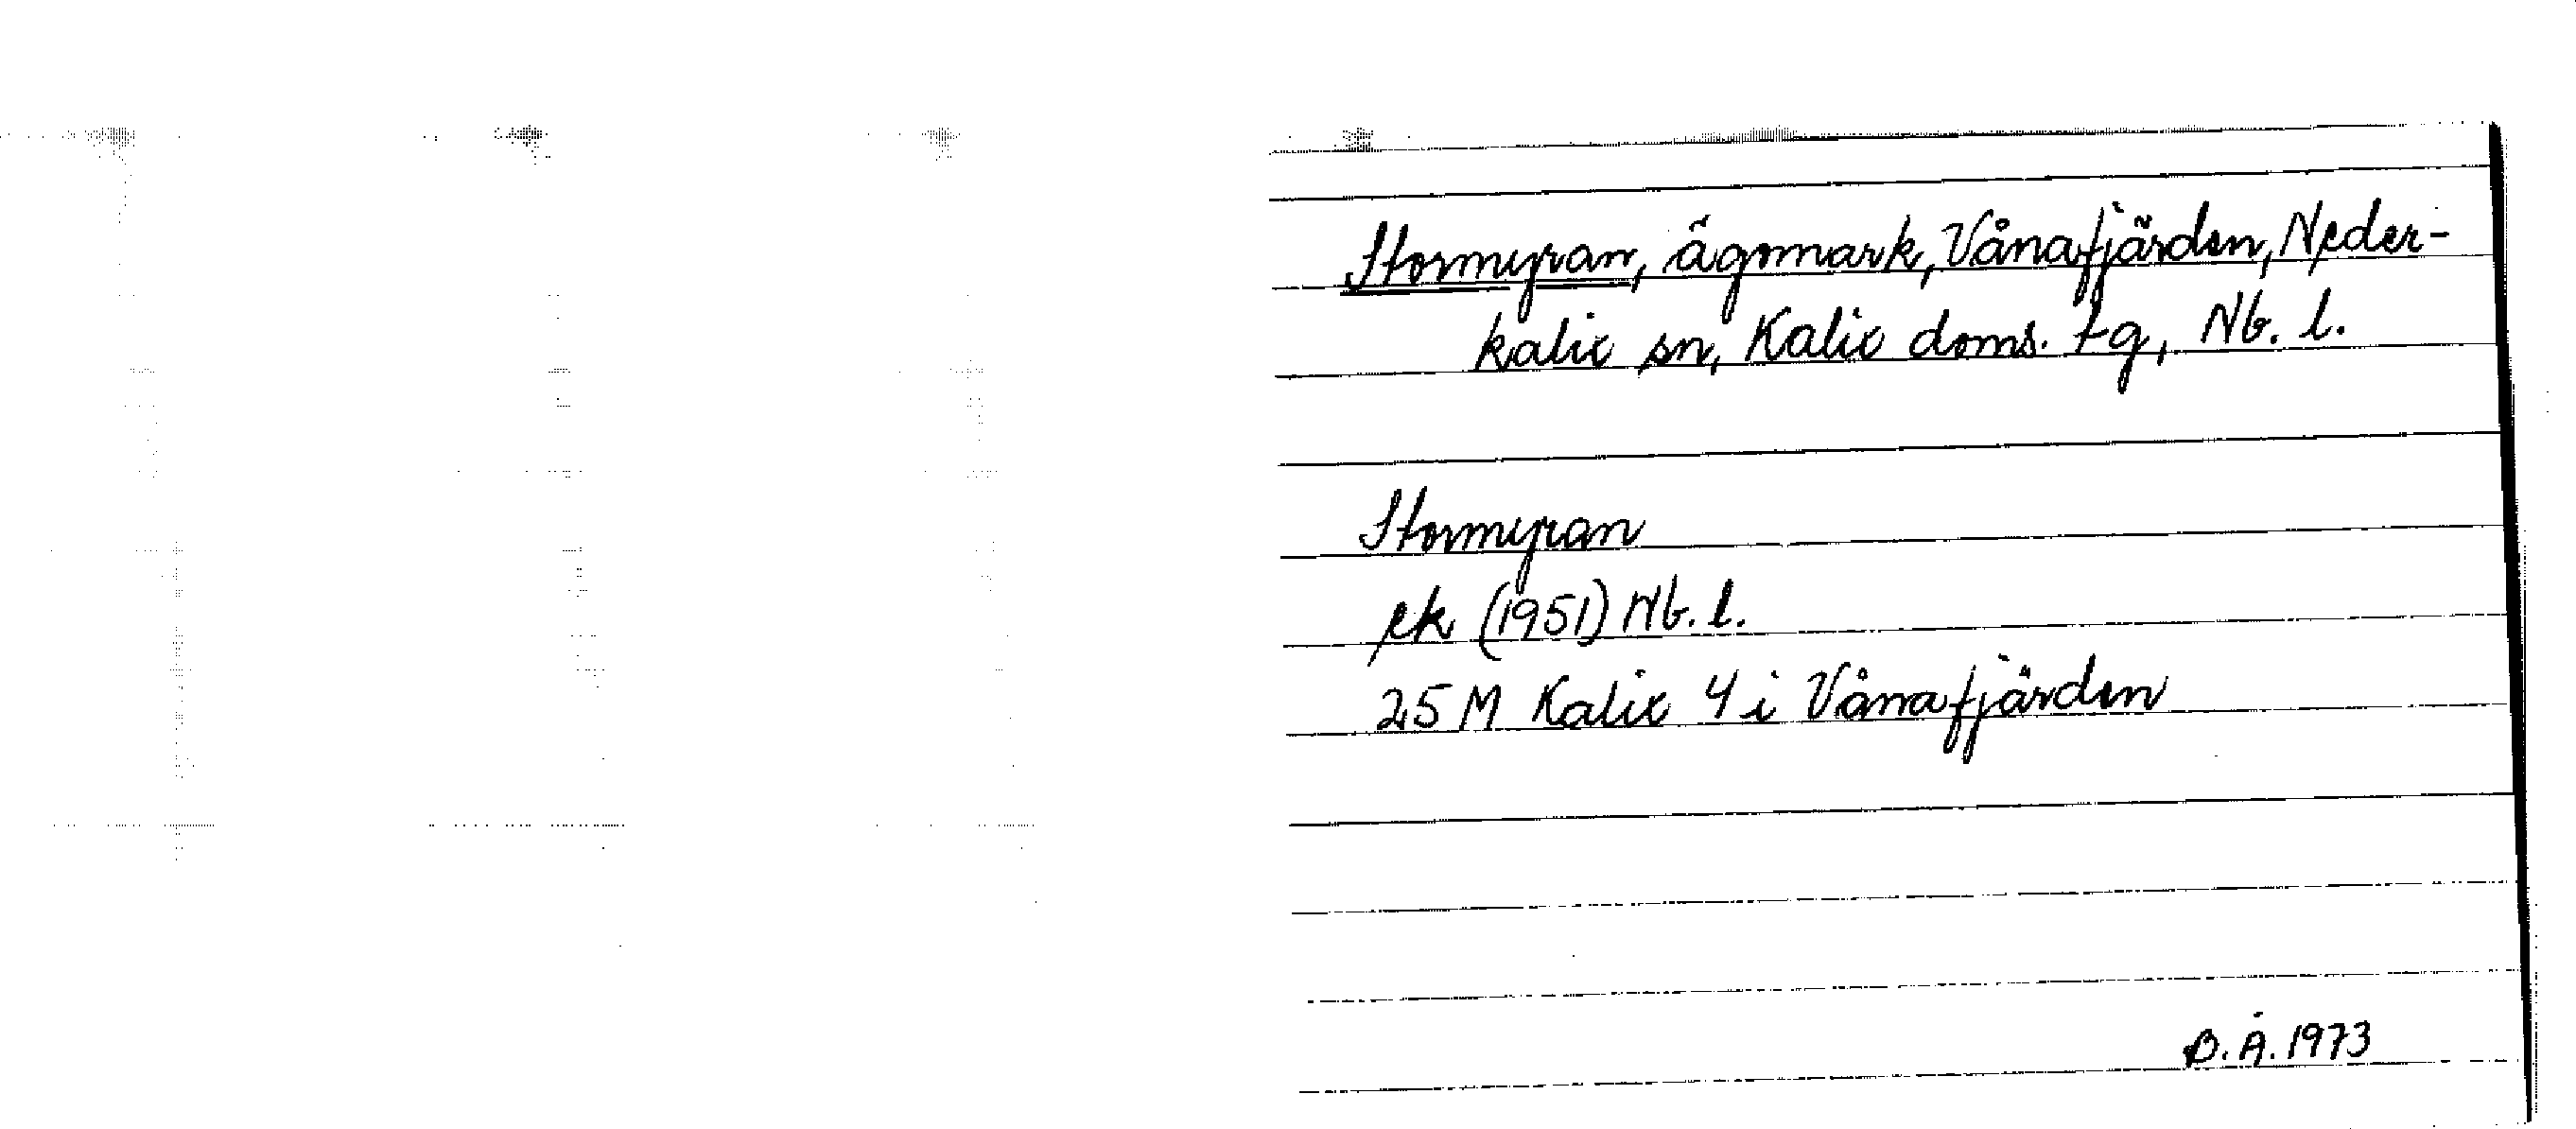 Stormyran, ägomark, Vånafjärden, Neder-
kalix sn, Kalix doms. tg, Nb. l.
Stormyran
ek (1951) Nb. l.
25 M Kalix 4 i Vånafjärden
B.Å. 1973